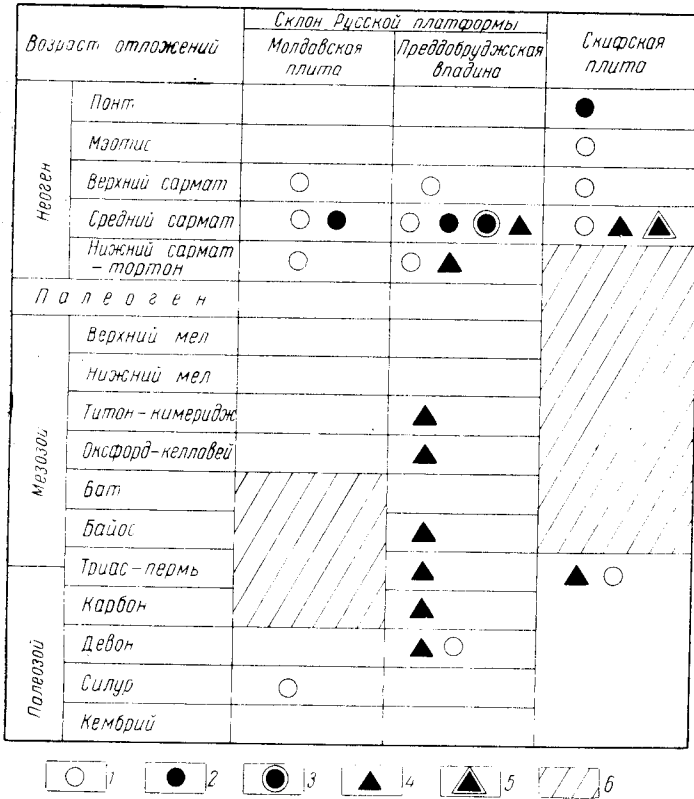 Возраст отложений
Склон Русской платформы
Молдавская
плита
Преддобруджская
впадина
Скифская
плита
Неоген
Понт
Мэотис
Верхний сармат
Средний сармат
Нижний сармат
– тортон
Палеоген
Мезозой
Верхний мел
Нижний мел
Титон–кимеридж
Оксфорд–келловей
Бат
Байос
Триас–пермь
Палеозой
Карбон
Девон
Силур
Кембрий
1 2 3 4 5 6